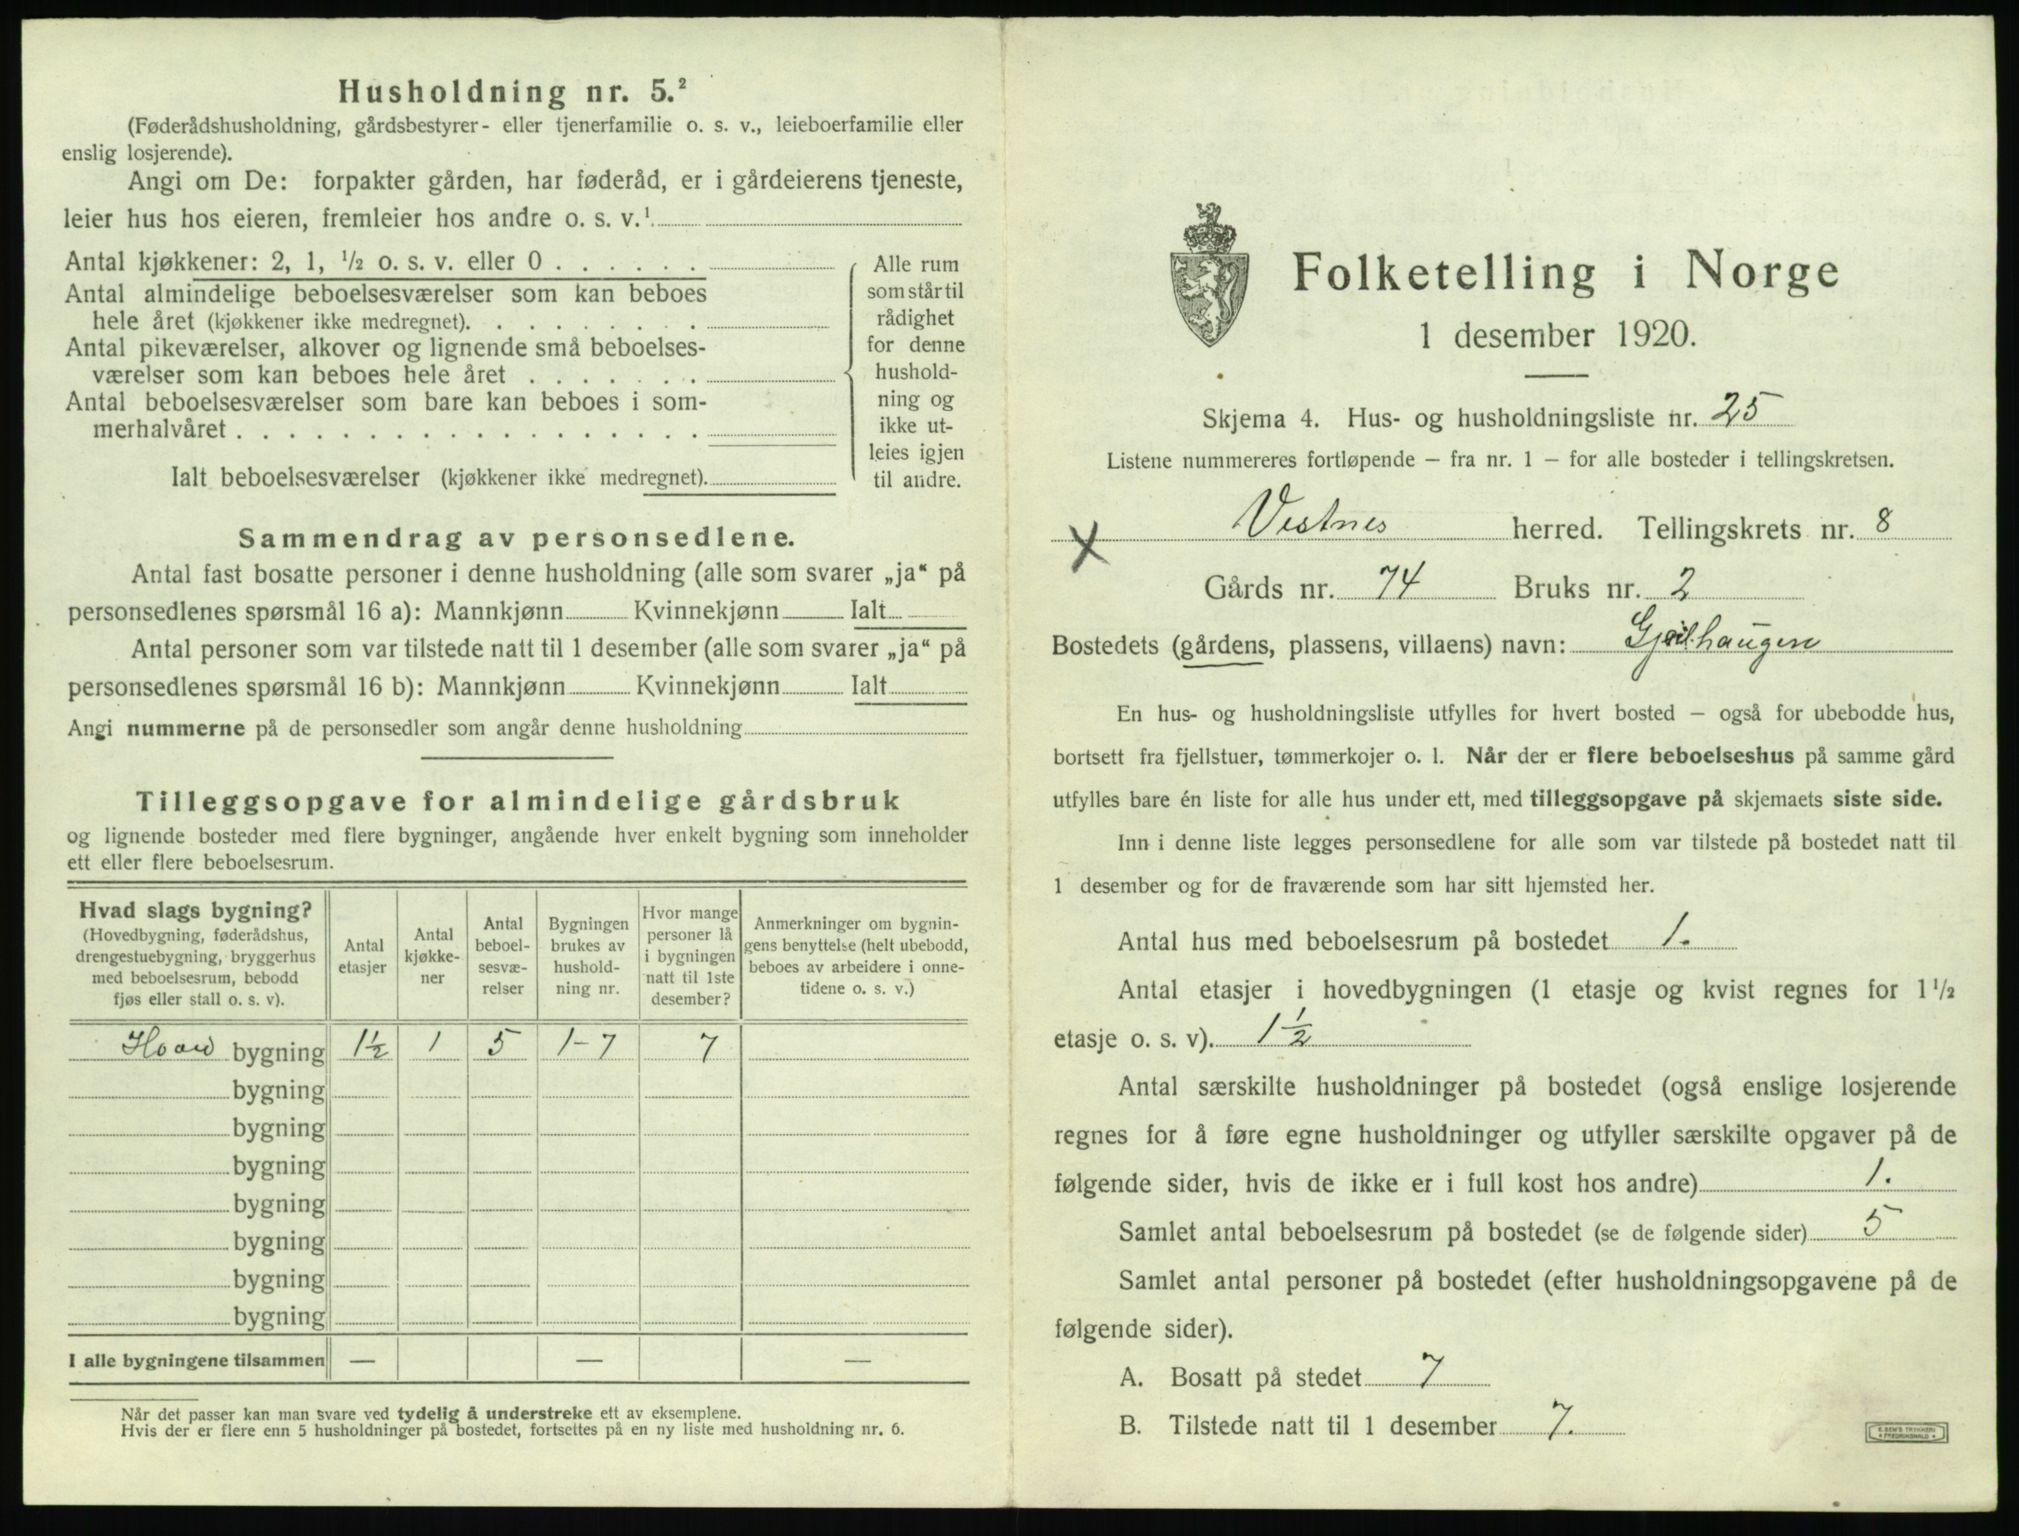 Husholdning nr. 5.²
(Føderådshusholdning, gårdsbestyrer- eller tjenerfamilie o. s. v., leieboerfamilie eller
enslig losjerende).
Angi om De: forpakter gården, har føderåd, er i gårdeierens tjeneste,
leier hus hos eieren, fremleier hos andre o. s. v.¹
Antal kjøkkener: 2, 1, ½ o. s. v. eller 0
Antal almindelige beboelsesværelser som kan beboes
hele året (kjøkkener ikke medregnet).
Antal pikeværelser, alkover og lignende små beboelses-
værelser som kan beboes hele året
Antal beboelsesværelser som bare kan beboes i som-
merhalvåret
Ialt beboelsesværelser (kjøkkener ikke medregnet).
Alle rum
som står til
rådighet
for denne
hushold-
ning og
ikke ut-
leies igjen
til andre.
Sammendrag av personsedlene.
Antal fast bosatte personer i denne husholdning (alle som svarer „ja“ på
personsedlenes spørsmål 16 a): Mannkjønn Kvinnekjønn Ialt
Antal personer som var tilstede natt til 1 desember (alle som svarer „ja“ på
personsedlenes spørsmål 16 b): Mannkjønn Kvinnekjønn Ialt
Angi nummerne på de personsedler som angår denne husholdning
Tilleggsopgave for almindelige gårdsbruk
og lignende bosteder med flere bygninger, angående hver enkelt bygning som inneholder
ett eller flere beboelsesrum.
Hvad slags bygning?
(Hovedbygning, føderådshus,
drengestuebygning, bryggerhus
med beboelsesrum, bebodd
fjøs eller stall o. s. v).
Antal
etasjer
Antal
kjøkke-
ner
Antal
beboel-
sesvæ-
relser
Bygningen
brukes av
hushold-
ning nr.
Hvor mange
personer lå
i bygningen
natt til 1ste
desember?
Anmerkninger om bygnin-
gens benyttelse (helt ubebodd,
beboes av arbeidere i onne-
tidene o. s. v.)
bygning 1½ 1 5 1-7 7
bygning
bygning
bygning
bygning
bygning
bygning
bygning
I alle bygningene tilsammen — — —
Når det passer kan man svare ved tydelig å understreke ett av eksemplene.
Hvis der er flere enn 5 husholdninger på bostedet, fortsettes på en ny liste med husholdning nr. 6.
Folketelling i Norge
1 desember 1920.
Skjema 4. Hus- og husholdningsliste nr. 25
Listene nummereres fortløpende – fra nr. 1 – for alle bosteder i tellingskretsen.
X Vestnes herred. Tellingskrets nr. 8
Gårds nr. 74 Bruks nr. 2
Bostedets (gårdens, plassens, villaens) navn: Gjeilhaugen
En hus- og husholdningsliste utfylles for hvert bosted – også for ubebodde hus,
bortsett fra fjellstuer, tømmerkojer o. l. Når der er flere beboelseshus på samme gård
utfylles bare én liste for alle hus under ett, med tilleggsopgave på skjemaets siste side.
Inn i denne liste legges personsedlene for alle som var tilstede på bostedet natt til
1 desember og for de fraværende som har sitt hjemsted her.
Antal hus med beboelsesrum på bostedet 1.
Antal etasjer i hovedbygningen (1 etasje og kvist regnes for 1½
etasje o. s. v). 1½
Antal særskilte husholdninger på bostedet (også enslige losjerende
regnes for å føre egne husholdninger og utfyller særskilte opgaver på de
følgende sider, hvis de ikke er i full kost hos andre) 1.
Samlet antal beboelsesrum på bostedet (se de følgende sider) 5
Samlet antal personer på bostedet (efter husholdningsopgavene på de
følgende sider).
A. Bosatt på stedet 7
B. Tilstede natt til 1 desember 7.
E. SEM'S TRYKKERI
FREDRIKSHALD